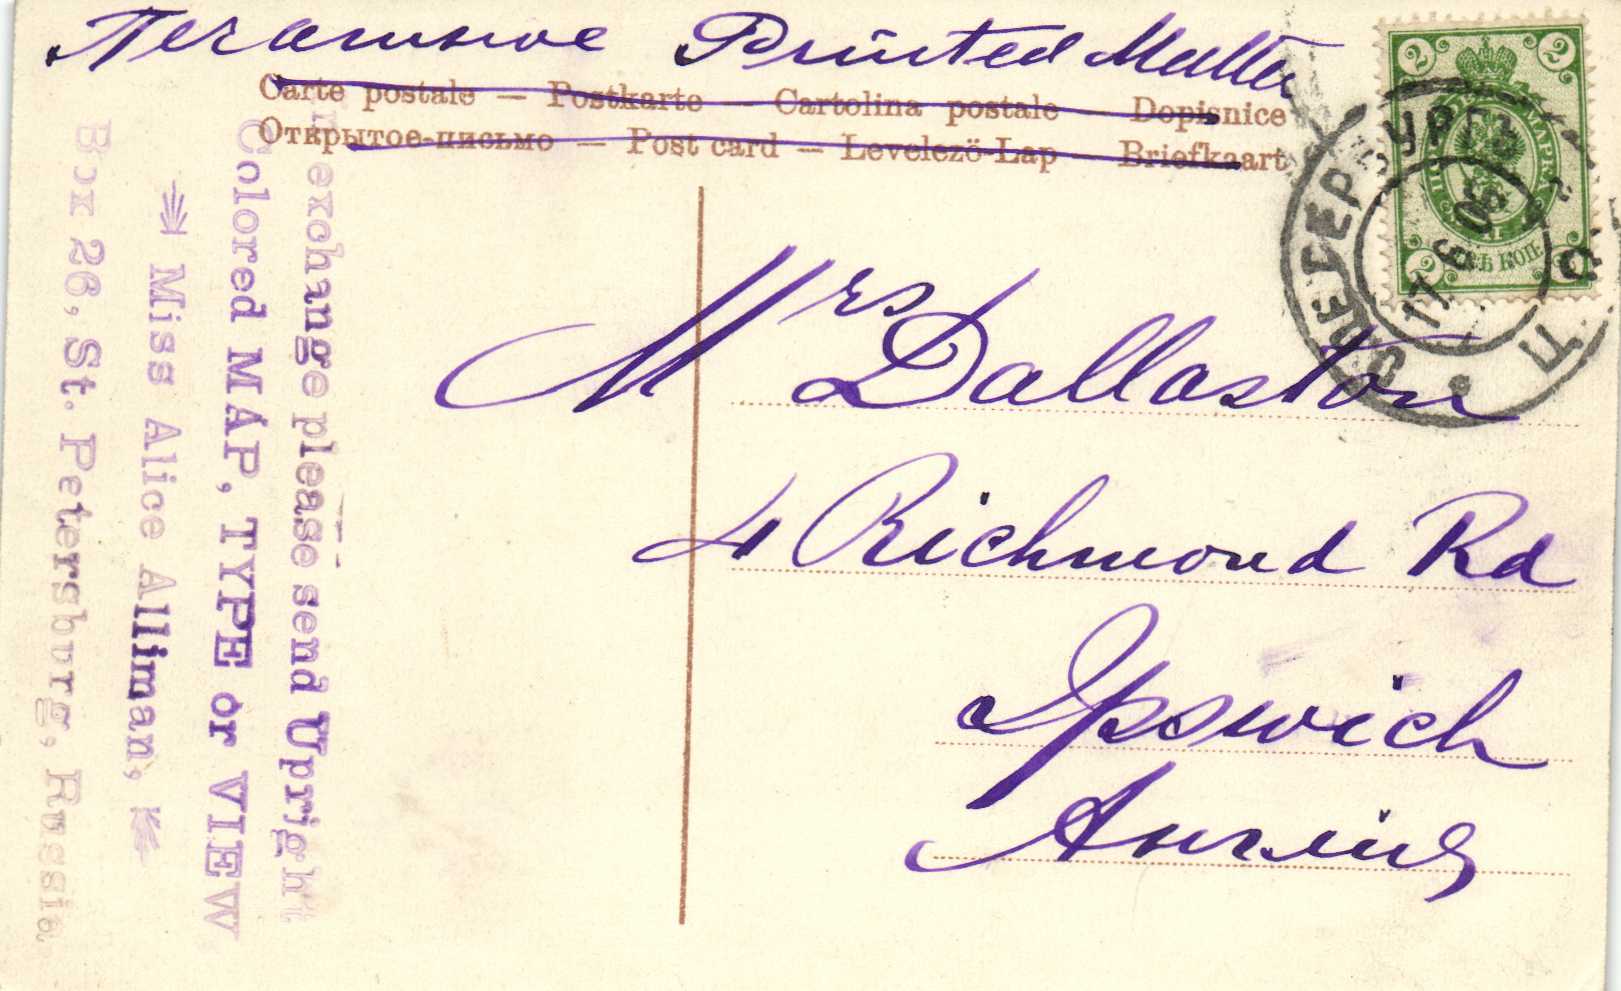 Печатное Printed Matter
Carte postale — Postkarte — Cartolina postale — Dopisnice
Открытое-письмо — Post card — Levelezö-Lap — Briefkaart
Mrs Dallaston
4 Richmond Rd
Ipswich
Англия
In exchange please send Upright
Colored MAP, TYPE or VIEW
Miss Alice Alliman,
Box 26, St. Petersburg, Russia
2 2
2 2
КОП.
С.ПЕТЕРБУРГЪ